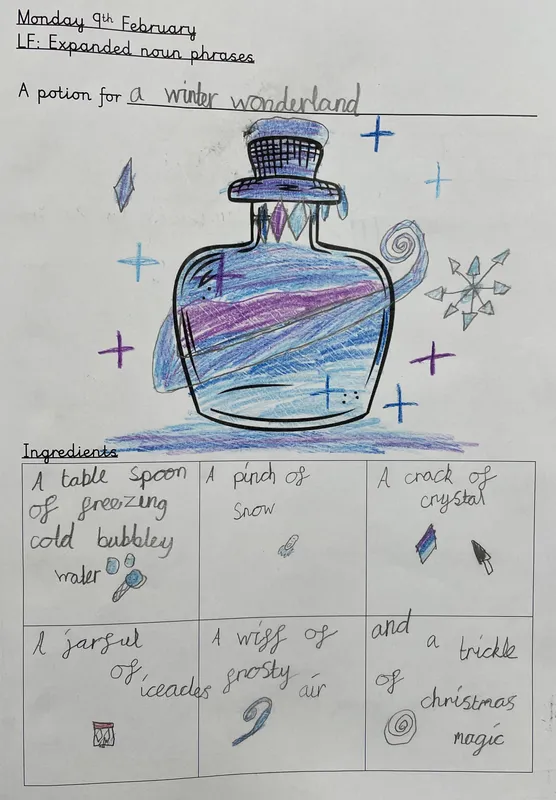 Monday 9th February
LF: Expanded noun phrases
A potion for a winter wonderland
Ingredients
A table spoon
of freezing
cold bubbley
water
A pinch of
snow
A crack of
crystal
A jarful
of
iceacles
A wiff of
frosty
air
and
a trickle
of
christmas
magic